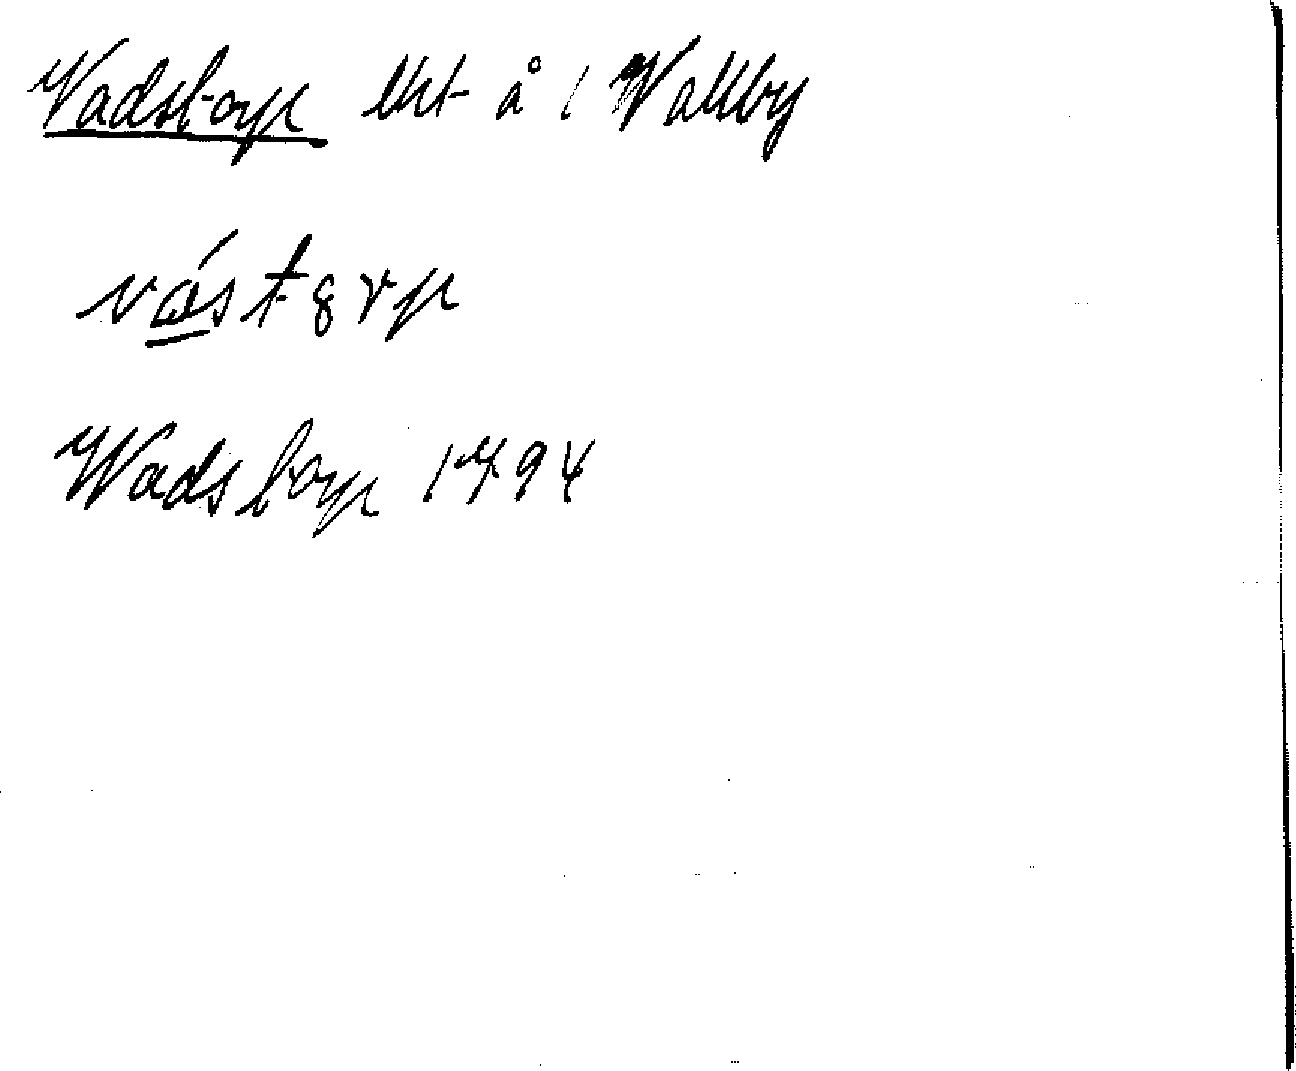 Vadstorp lht å i Vallby
vást8rp
Wadstorp 1794